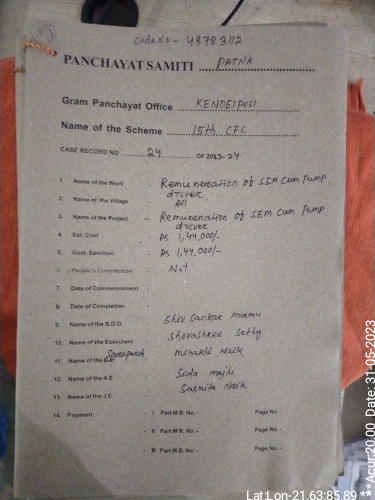 Code No - 48783112
PANCHAYAT SAMITI PATNA
Gram Panchayat Office KENDEIPOSI
Name of the Scheme 15th CFC
CASE RECORD NO 24 OF 2023-24
1. Name of the Work - Remuneration of SEM Cum Pump driver
2. Name of the Village - All
3. Name of the Project - Remuneration of SEM Cum Pump driver
4. Est. Cost - Rs 1,44,000/-
5. Govt. Sanction - Rs 1,44,000/-
6. People's Contribution - Nil
7. Date of Commencement
8. Date of Completion
9. Name of the B.D.O. Shiv Sankar Murmu
10. Name of the Executant Shovashree Sethy
11. Name of the Sarapanch Minakhi Naik
12. Name of the A.E Sida majhi
13. Name of the J.E. Sasmita Naik
14. Payment - I Part M B. No. - Page No.
- II Part M B. No. - Page No. -
- III Part M B. No. - Page No. -
Lat:Lon-21.63:85.89 **Acur:20.00 Date: 31-05-2023